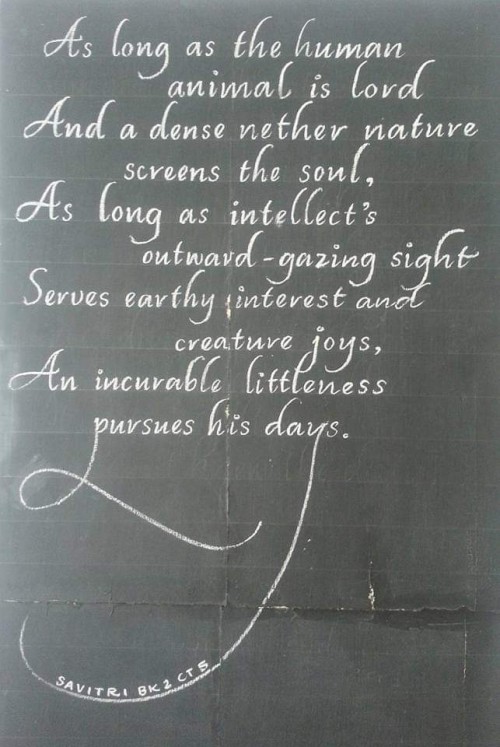 As long as the human
animal is lord
And a dense nether nature
screens the soul,
As long as intellect's
outward-gazing sight
Serves earthy interest and
creature joys,
An incurable littleness
pursues his days.
SAVITRI BK 2 CT 5